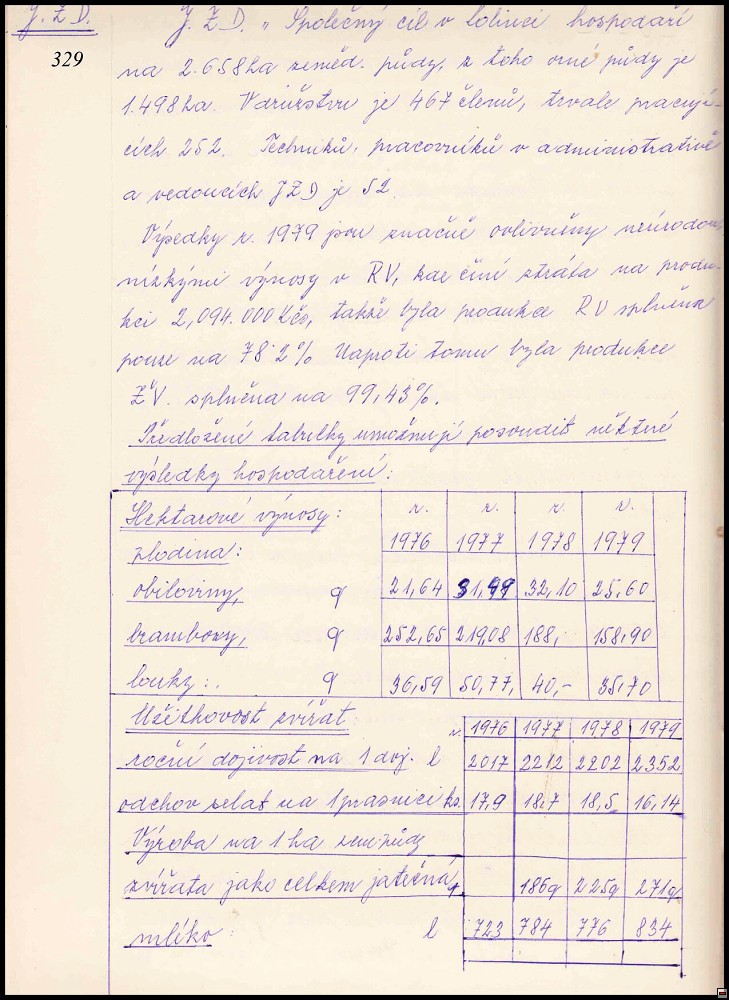 J. Z. D.
329
J. Z. D. „Společný cíl v Lobnici hospodaří
na 2.658 ha zeměd. půdy, z toho orné půdy je
1.498 ha. V družstvu je 467 členů, trvale pracují-
cích 252. Techniků, pracovníků v administrativě
a vedoucích JZD je 52.
Výsedky r. 1979 jsou značně ovlivněny neúrodou
nízkými výnosy v RV, kde činí ztráta na produ-
kci 2,094.000 Kčs, takže byla produkce RV splněna
pouze na 78·2% Naproti tomu byla produkce
ŽV. splněna na 99,43%.
Předložené tabulky umožňují posoudit některé
výsledky hospodaření:
Hektarové výnosy: r. r. r. r.
plodina: 1976 1977 1978 1979
obiloviny, q 21,64 31,99 32,10 25,60
brambory, q 252,65 219,08 188,- 158,90
louky: q 36,59 50,77, 40,- 35,70
Užitkovost zvířat r. 1976 1977 1978 1979
roční dojivost na 1 doj. l 2017 2212 2202 2352
odchov selat na 1 prasnici ks. 17,9 18,7 18,5 16,14
Výroba na 1 ha zem. půdy
zvířata jako celkem jatečná q. 186q 225q 271q
mléko: l 723 784 776 834